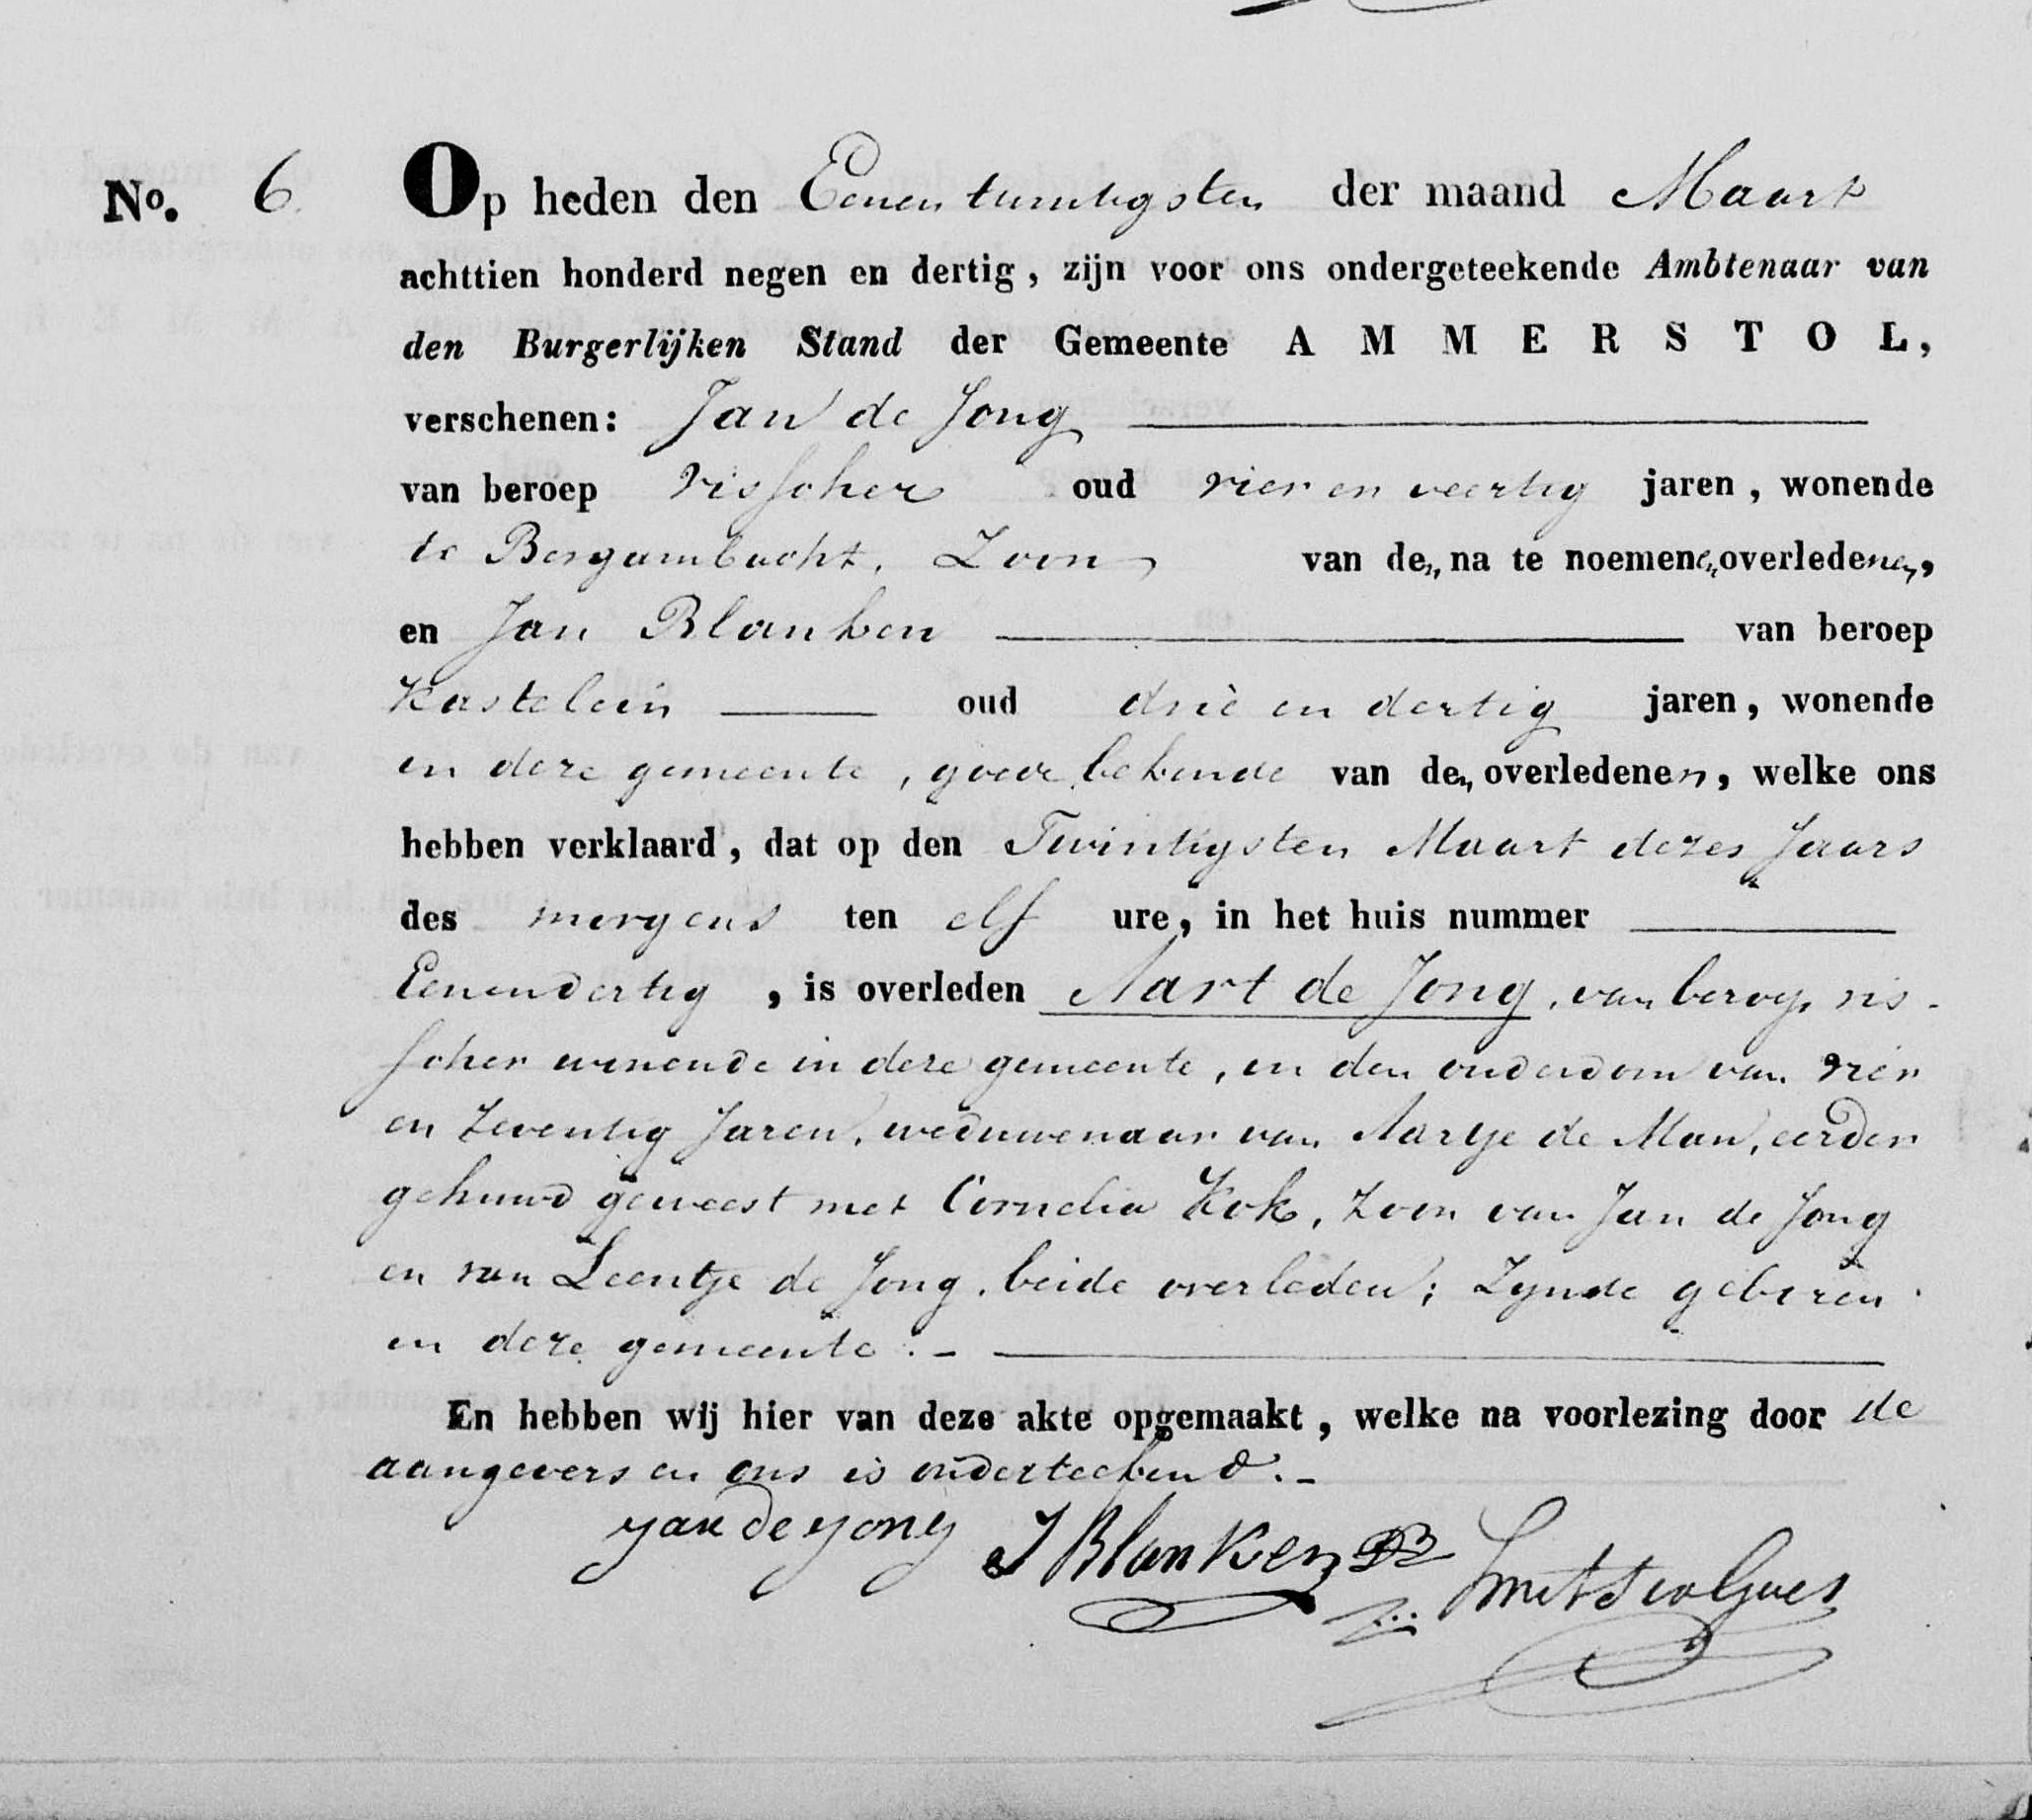 No. 6 Op heden den Eenen twintigsten der maand Maart
achttien honderd negen en dertig, zijn voor ons ondergeteekende Ambtenaar van
den Burgerlijken Stand der Gemeente AMMERSTOL,
verschenen: Jan de Jong
van beroep visscher oud vier en veertig jaren, wonende
te Bergambacht, Zoon van den na te noemenen overledenen,
en Jan Blanken van beroep
Kastelein oud drie en dertig jaren, wonende
in deze gemeente, goede bekende van den overledenen, welke ons
hebben verklaard, dat op den Twintigsten Maart dezes Jaars
des morgens ten elf ure, in het huis nummer
Eenendertig, is overleden Aart de Jong, van beroep vis-
scher wonende in deze gemeente, in den ouderdom van vier
en zeventig Jaren, weduwenaar van Aartje de Man, eerder
gehuwd geweest met Cornelia Kok, zoon van Jan de Jong
en van Leentje de Jong, beide overleden; Zynde geboren
in deze gemeente.-
En hebben wij hier van deze akte opgemaakt, welke na voorlezing door de
aangevers en ons is onderteekend.-
yan de yong J Blanken